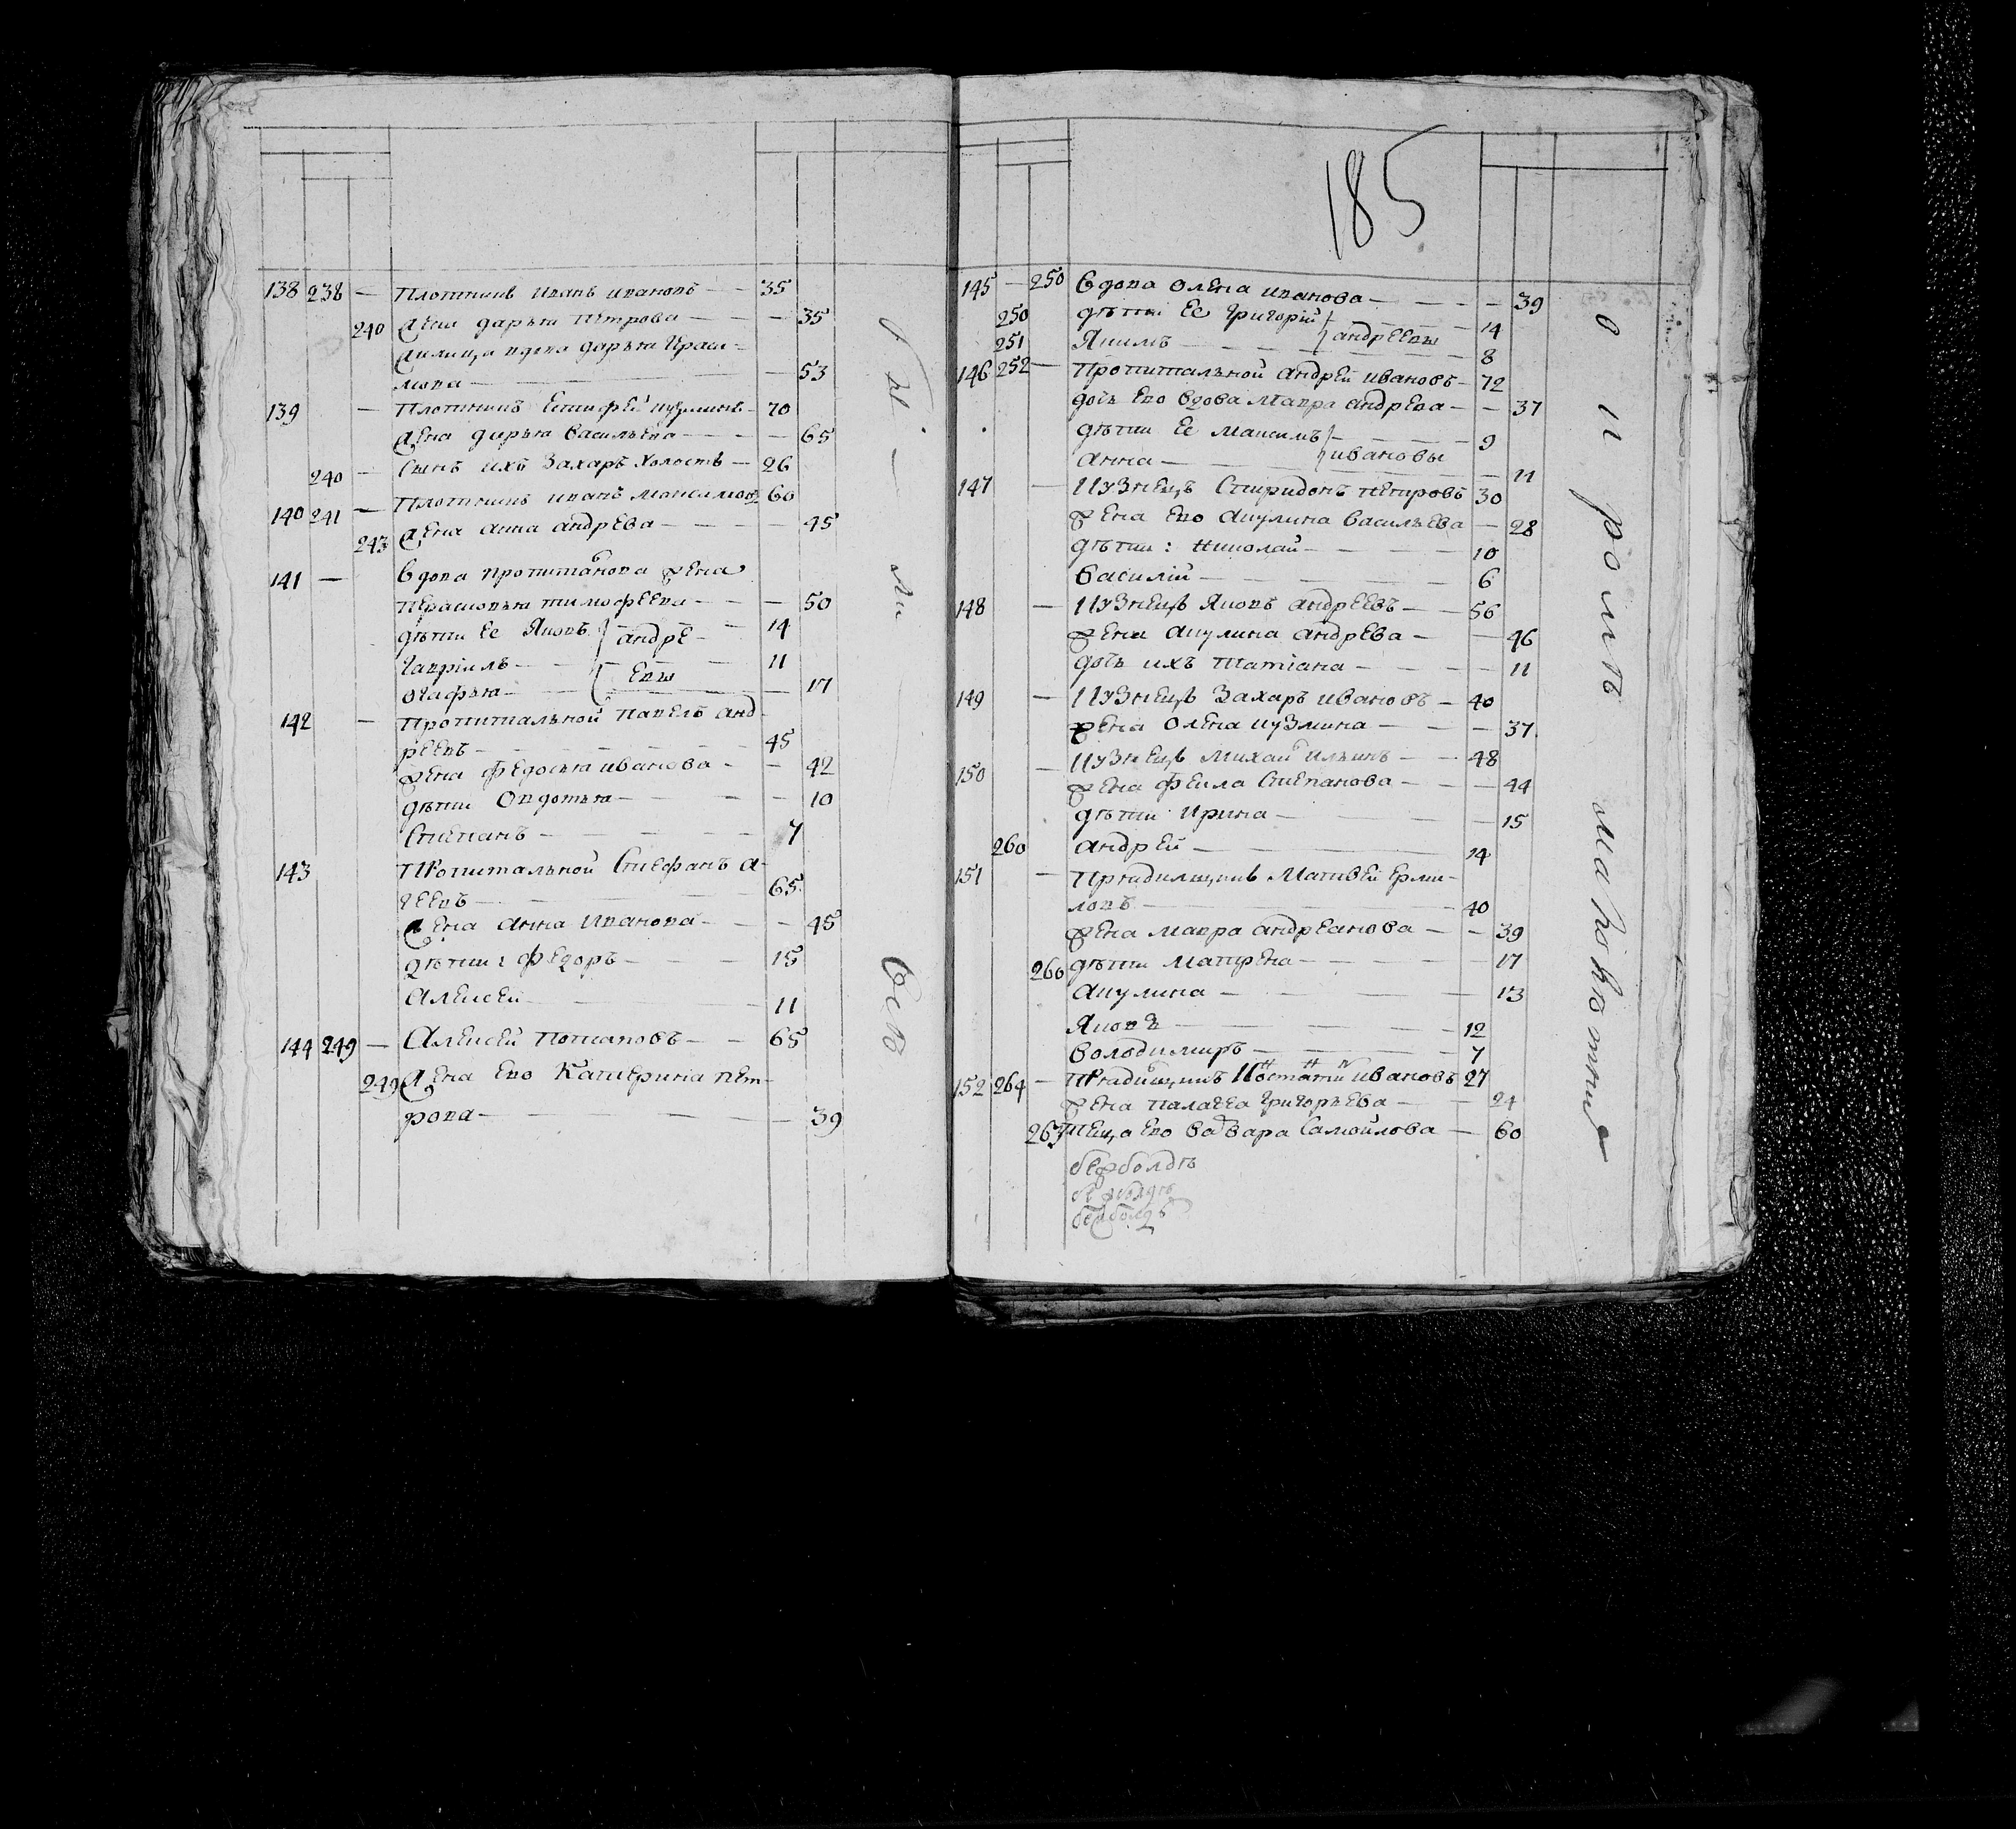 138 238 — Плотникъ Иванъ Ивановъ — — 35
240 жена Дарья Петрова — — — 35
вдова Дарья Гераси-
мова — — 53
139 — Плотникъ Епифей Кузминъ — 70
жена Дарья Васильева — — — 65
240 — Сынъ ихъ Захаръ холостъ — 26
140 241 — Плотникъ Иванъ Максимовъ 60
243 жена Анна Андрева — — — 45
141 — Вдова жена
Парасковья Тимофеева — — — 50
дѣти ее Яковъ } Андре- — 14
Гавріилъ — — { евы — 11
Огафья — — — 17
142 — Пропитальной Павелъ Анд-
реевъ — — — 45
жена Федосья Иванова — — 42
дѣти Овдотья — — — 10
Степанъ — — — 7
143 Пропитальной Стефанъ А-
геевъ — — — 65
жена Анна Иванова — — — 45
дѣти: Федоръ — — — 15
Алексей — — — 11
144 249 — Алексей Потаповъ — — 65
249 Жена ево Катерина Пет-
рова — — — 39
бы — ли Всѣ
185
145 — 250 Вдова Олена Иванова — — — 39
250 дѣти ее Григорій } — — 14
251 Якимъ — — } Андреевы — 8
146 252 — Пропитальной Андрей Ивановъ — 72
дочь ево вдова Мавра Андрева — — 37
дѣти ее Максимъ } — — 9
Анна — — } Ивановы — 11
147 — Кузнецъ Спиридонъ Петровъ 30
жена ево Акулина Васильева — 28
дѣти: Николай — — — 10
Василій — — — 6
148 — Кузнецъ Яковъ Андреевъ — — 56
жена Акулина Андрева — — 46
дочь ихъ Татіана — — — 11
149 — Кузнецъ Захаръ Ивановъ — 40
жена Олена Кузмина — — 37
150 — Кузнецъ Михаи Ильинъ — — 48
жена Фекла Степанова — — 44
дѣти Ирина — — — 15
260 Андрей — — — 14
151 — Прядилщикъ Матвей Ерми-
ловъ — — — 40
жена Мавра Андреанова — — 39
266 дѣти Матрена — — — 17
Акулина — — — 13
Яковъ — — — 12
Володимиръ — — — 7
152 264 — Прядилщикъ Костатинъ Ивановъ 27
жена Палагеа Григорьева — — 24
267 теща ево Варвара Самойлова — 60
о кромѣ малолѣтнихъ